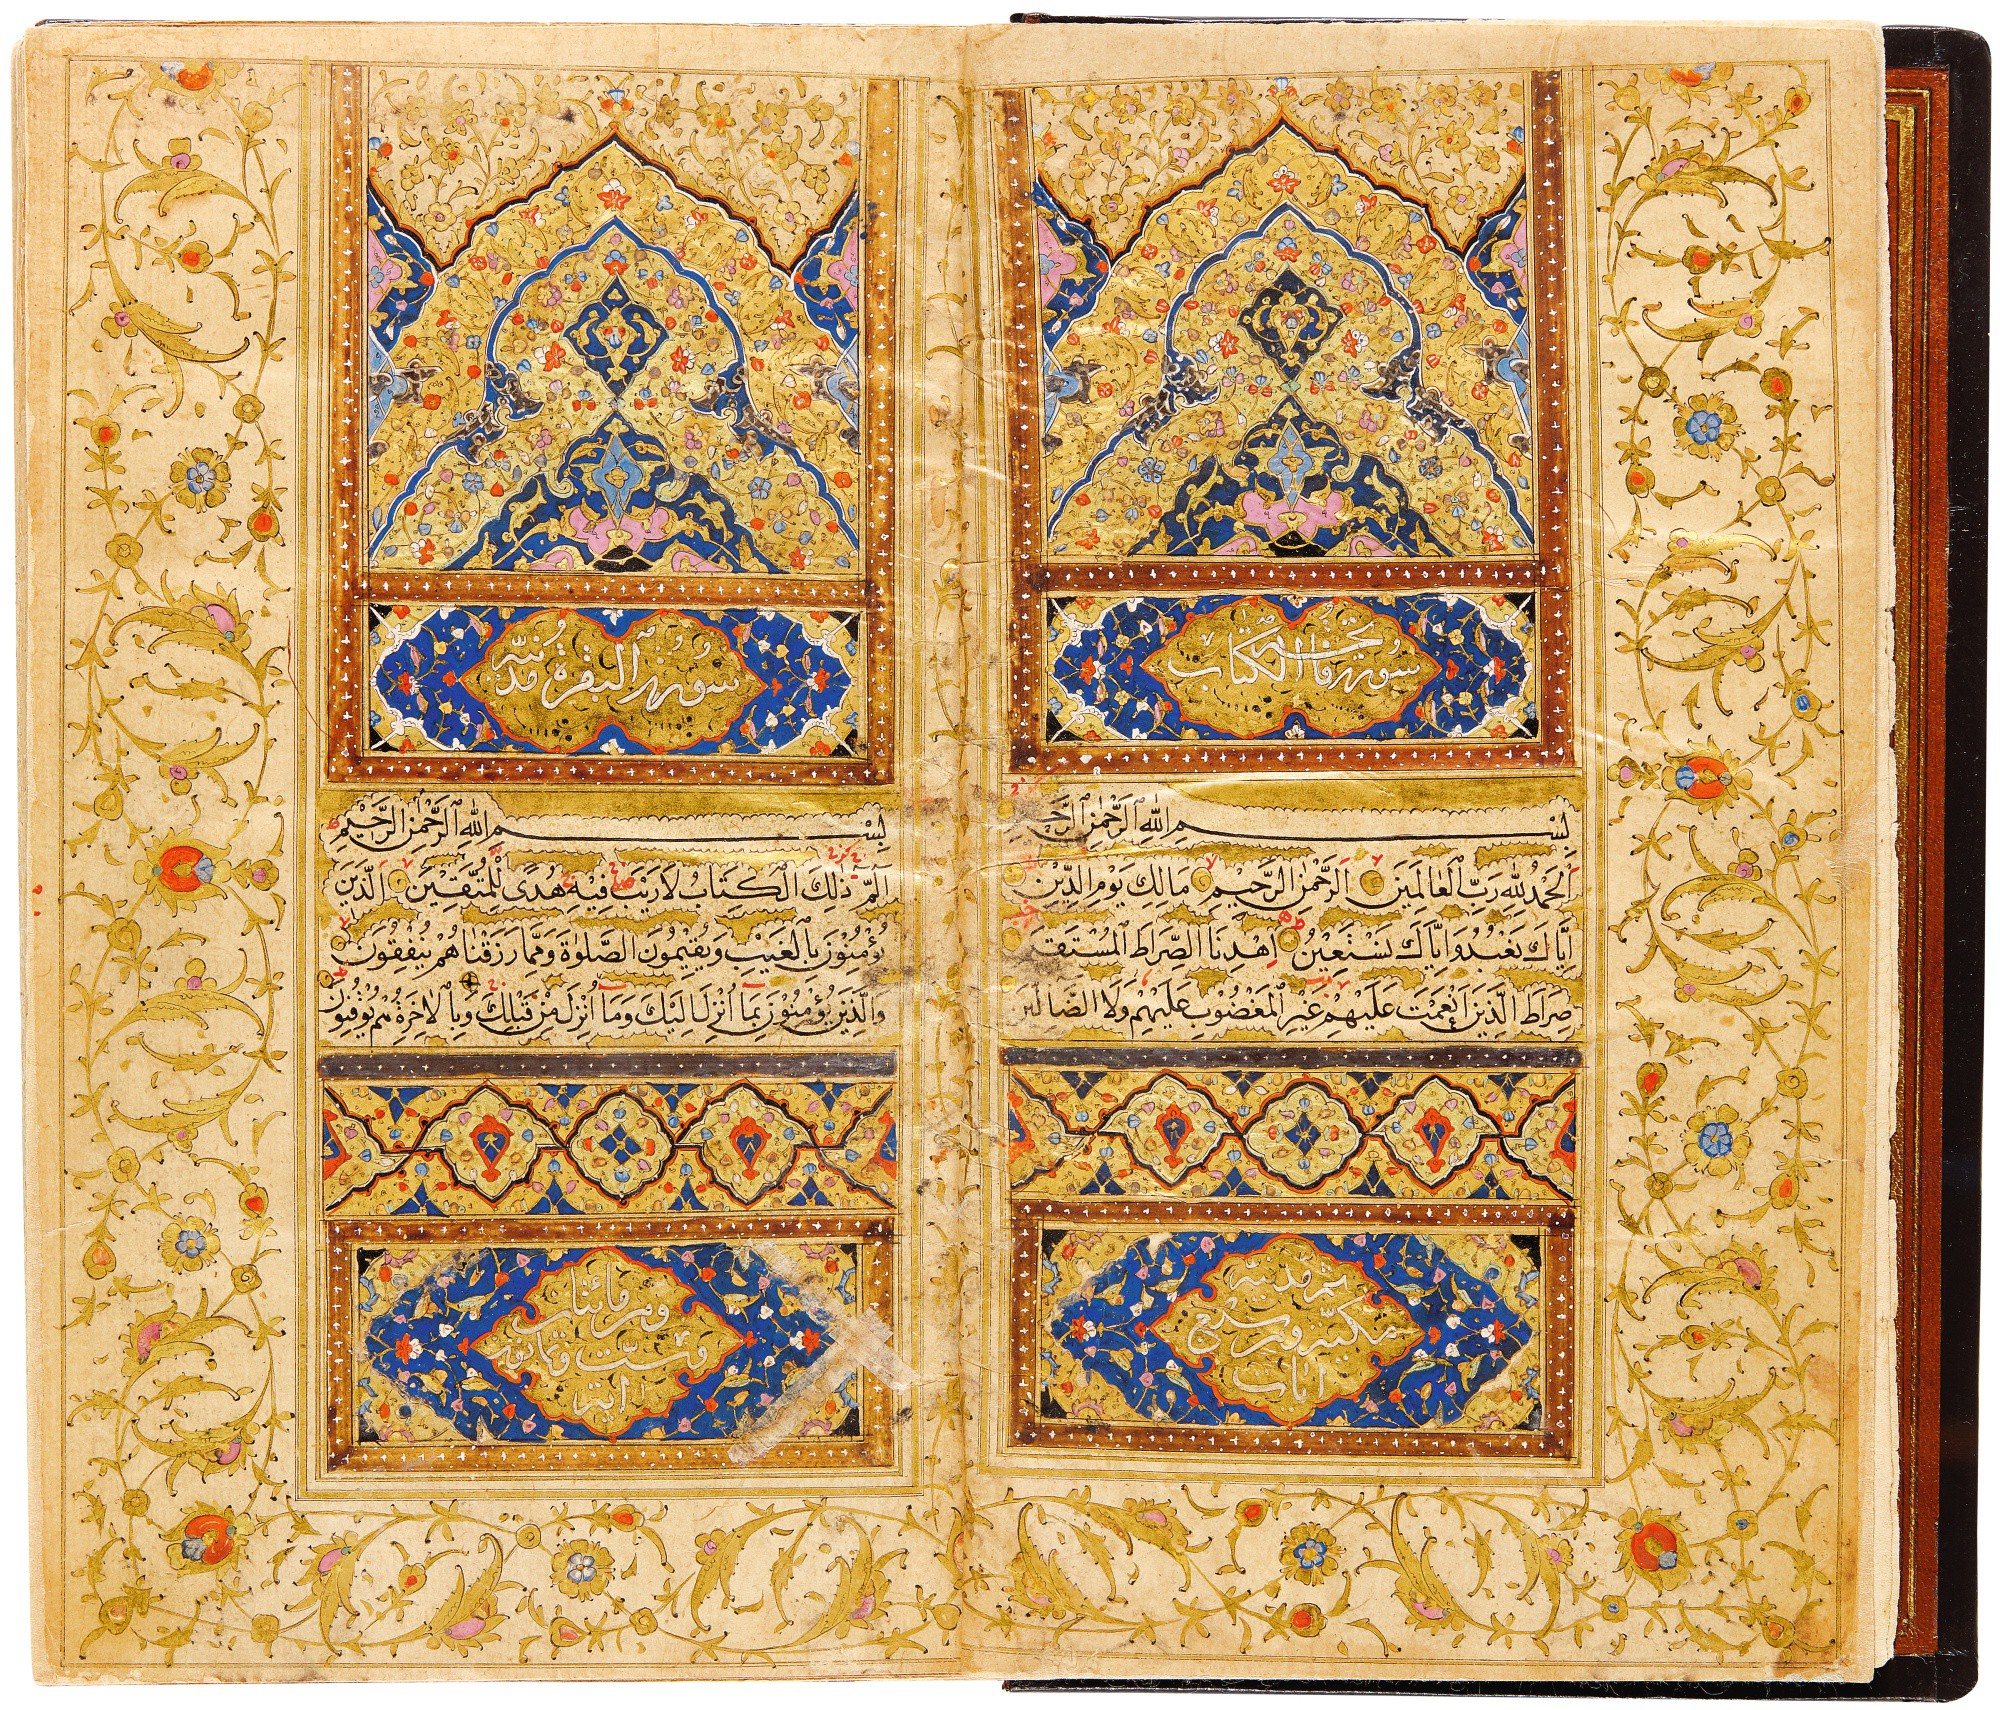 سورة فاتحة الكتاب
بِسْمِ ٱللَّهِ ٱلرَّحْمٰنِ ٱلرَّحِيمِ
اَلْحَمْدُ لِلّٰهِ رَبِّ ٱلْعَالَمِينَ ٱلرَّحْمٰنِ ٱلرَّحِيمِ مَالِكِ يَوْمِ الدِّينِ
اِيَّاكَ نَعْبُدُ وَاِيَّاكَ نَسْتَعِينُ اِهْدِنَا الصِّرَاطَ الْمُسْتَقِيمَ
صِرَاطَ الَّذِينَ اَنْعَمْتَ عَلَيْهِمْ غَيْرِ الْمَغْضُوبِ عَلَيْهِمْ وَلَا الضَّالِّينَ
مدنية
مكية و هي سبع
آيات
سورة البقرة مدنية
بِسْمِ ٱللَّهِ ٱلرَّحْمٰنِ ٱلرَّحِيمِ
الٓمٓ ذٰلِكَ الْكِتَابُ لَا رَيْبَ فِيهِ هُدًى لِلْمُتَّقِينَ الَّذِينَ
يُؤْمِنُونَ بِالْغَيْبِ وَيُقِيمُونَ الصَّلٰوةَ وَمِمَّا رَزَقْنَاهُمْ يُنْفِقُونَ
وَالَّذِينَ يُؤْمِنُونَ بِمَا اُنْزِلَ اِلَيْكَ وَمَا اُنْزِلَ مِنْ قَبْلِكَ وَبِالْاٰخِرَةِ هُمْ يُوقِنُونَ
و هي مائتان
و ست و ثمانون
آية